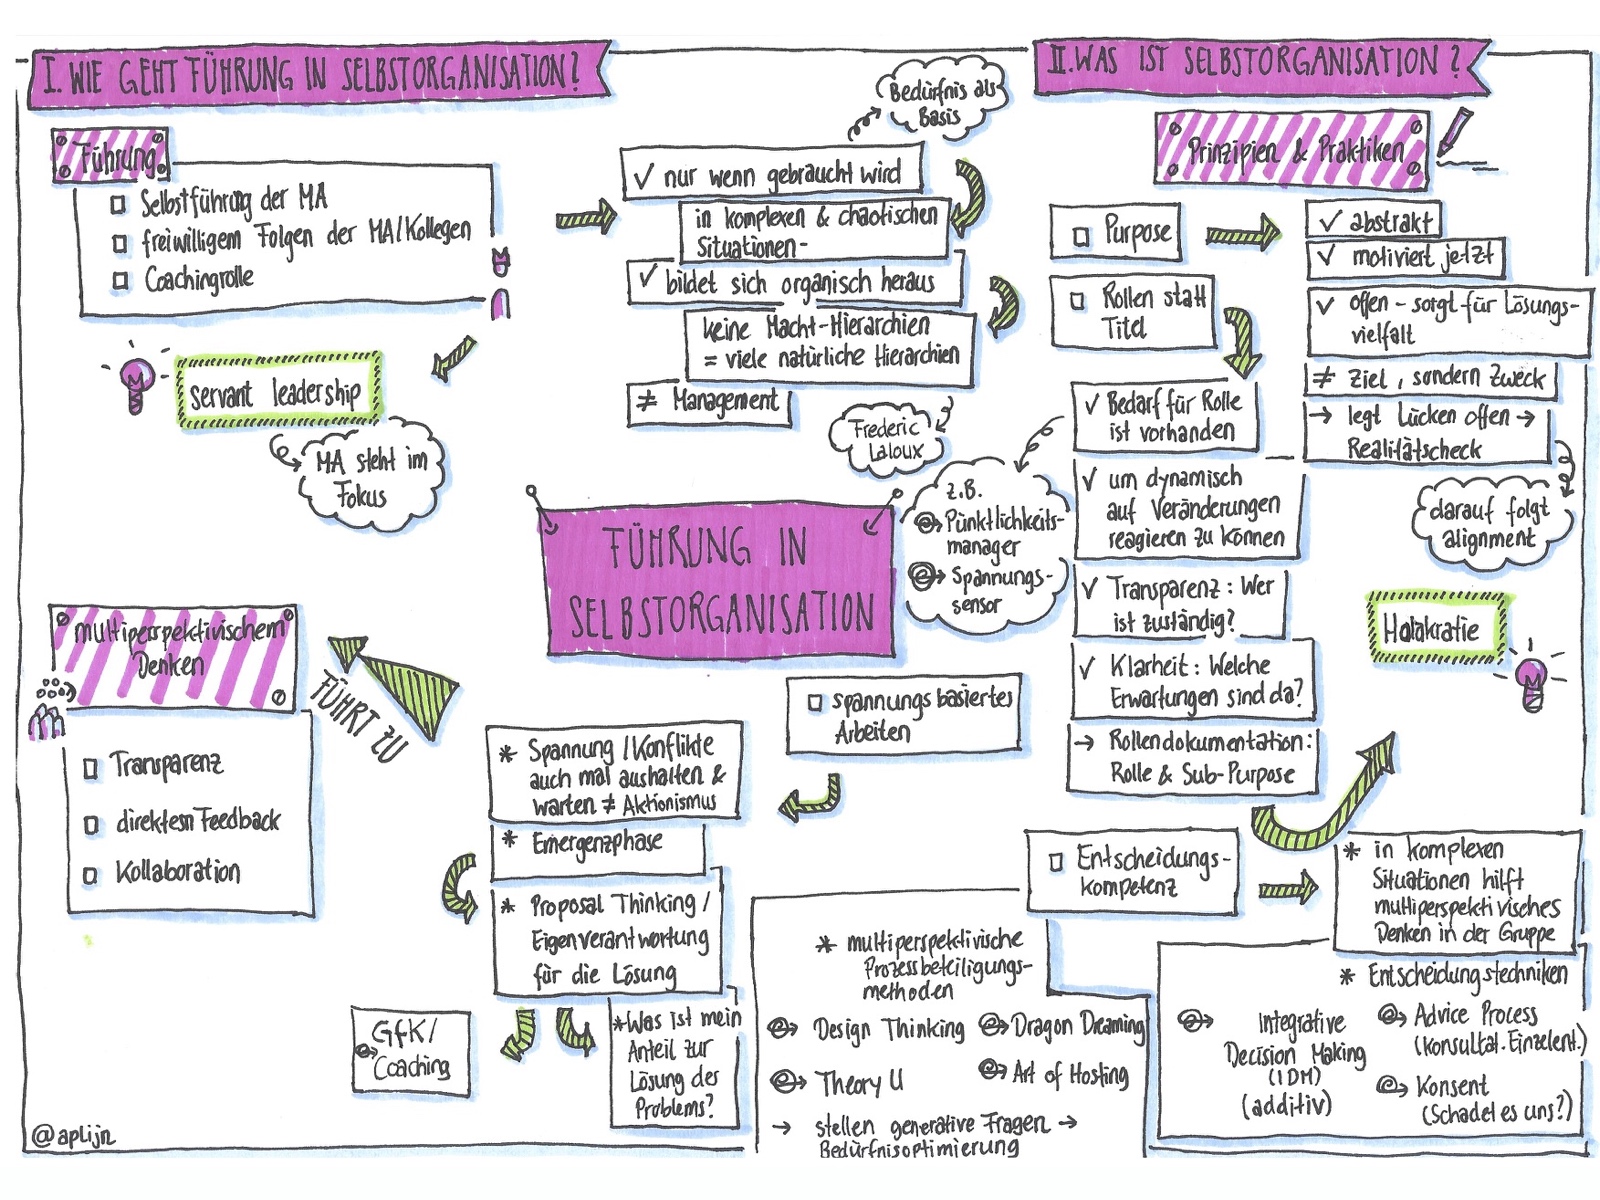 I. WIE GEHT FÜHRUNG IN SELBSTORGANISATION?
Führung
Selbstführung der MA
freiwilligem Folgen der MA/Kollegen
Coachingrolle
servant leadership
MA steht im
Fokus
Bedürfnis als
Basis
✓ nur wenn gebraucht wird
in komplexen & chaotischen
Situationen-
✓ bildet sich organisch heraus
keine Macht-Hierarchien
= viele natürliche Hierarchien
≠ Management
Frederic
Laloux
FÜHRUNG IN
SELBSTORGANISATION
multiperspektivischem
Denken
Transparenz
direktem Feedback
Kollaboration
FÜHRT ZU
II. WAS IST SELBSTORGANISATION?
Prinzipien & Praktiken
Purpose
✓ abstrakt
✓ motiviert jetzt
✓ offen - sorgt für Lösungs-
vielfalt
≠ Ziel, sondern Zweck
→ legt Lücken offen →
Realitätscheck
darauf folgt
alignment
Rollen statt
Titel
✓ Bedarf für Rolle
ist vorhanden
z.B.
Pünktlichkeits-
manager
Spannungs-
sensor
✓ um dynamisch
auf Veränderungen
reagieren zu können
✓ Transparenz: Wer
ist zuständig?
✓ Klarheit: Welche
Erwartungen sind da?
→ Rollendokumentation:
Rolle & Sub-Purpose
Holakratie
spannungsbasiertes
Arbeiten
* Spannung/Konflikte
auch mal aushalten &
warten ≠ Aktionismus
* Emergenzphase
* Proposal Thinking/
Eigenverantwortung
für die Lösung
GfK/
Coaching
* Was ist mein
Anteil zur
Lösung des
Problems?
Entscheidungs-
kompetenz
* in komplexen
Situationen hilft
multiperspektivisches
Denken in der Gruppe
* multiperspektivische
Prozessbeteiligungs-
methoden
Design Thinking
Dragon Dreaming
Theory U
Art of Hosting
→ stellen generative Fragen →
Bedürfnisoptimierung
* Entscheidungstechniken
Integrative
Decision Making
(IDM)
(additiv)
Advice Process
(Konsultat. Einzelent.)
Konsent
(Schadet es uns?)
@aplijn